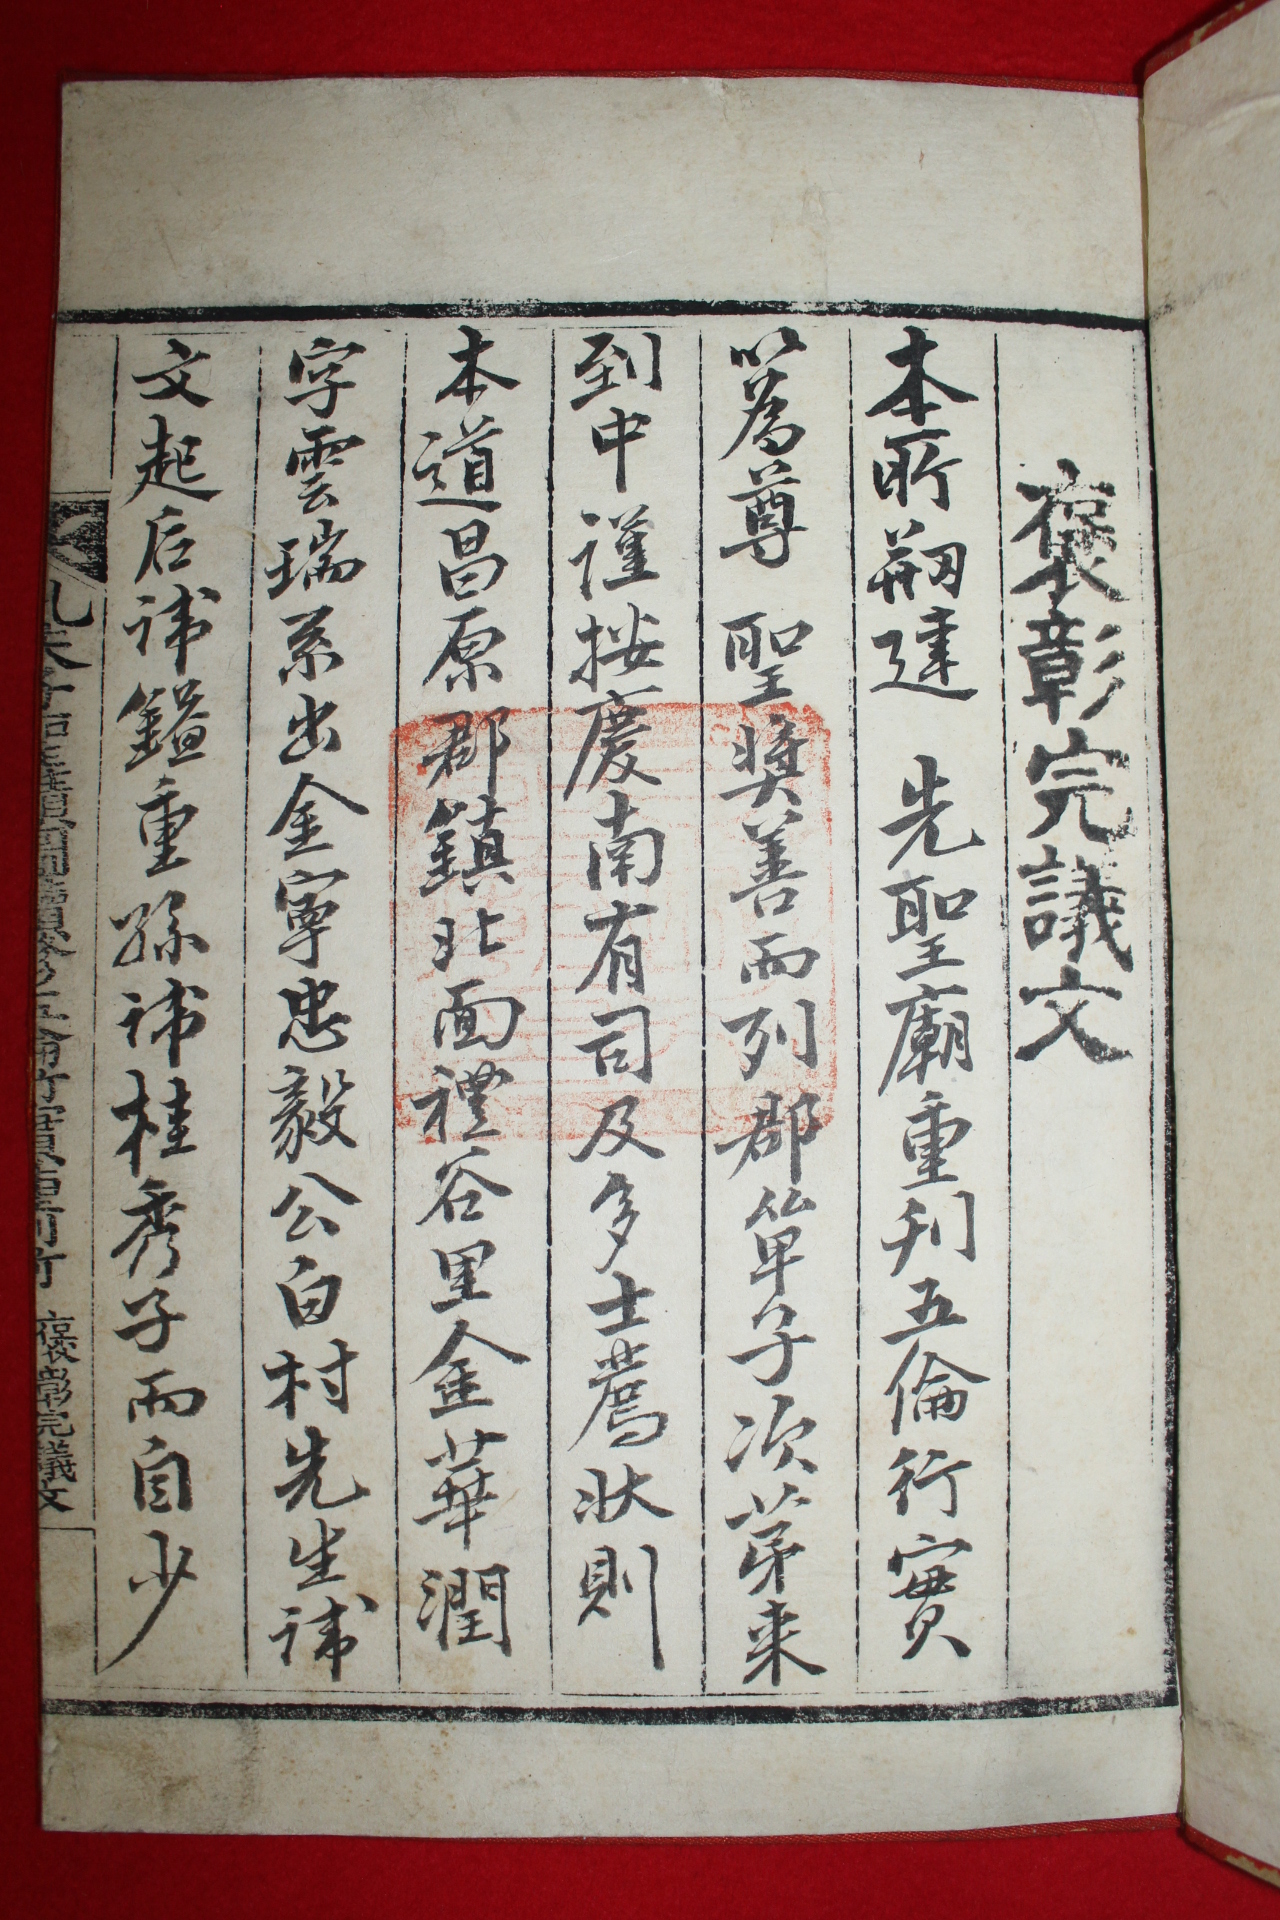 褒彰完議文
本所刱建 先聖廟重刊五倫行實
以爲尊 聖奬善而列郡單子次苐来
到中謹按慶南有司及多士薦狀則
本道昌原郡鎭北面禮谷里金華潤
字雲瑞系出金寧忠毅公白村先生諱
文起后諱鎰重孫諱桂秀子而自少
褒彰完議文